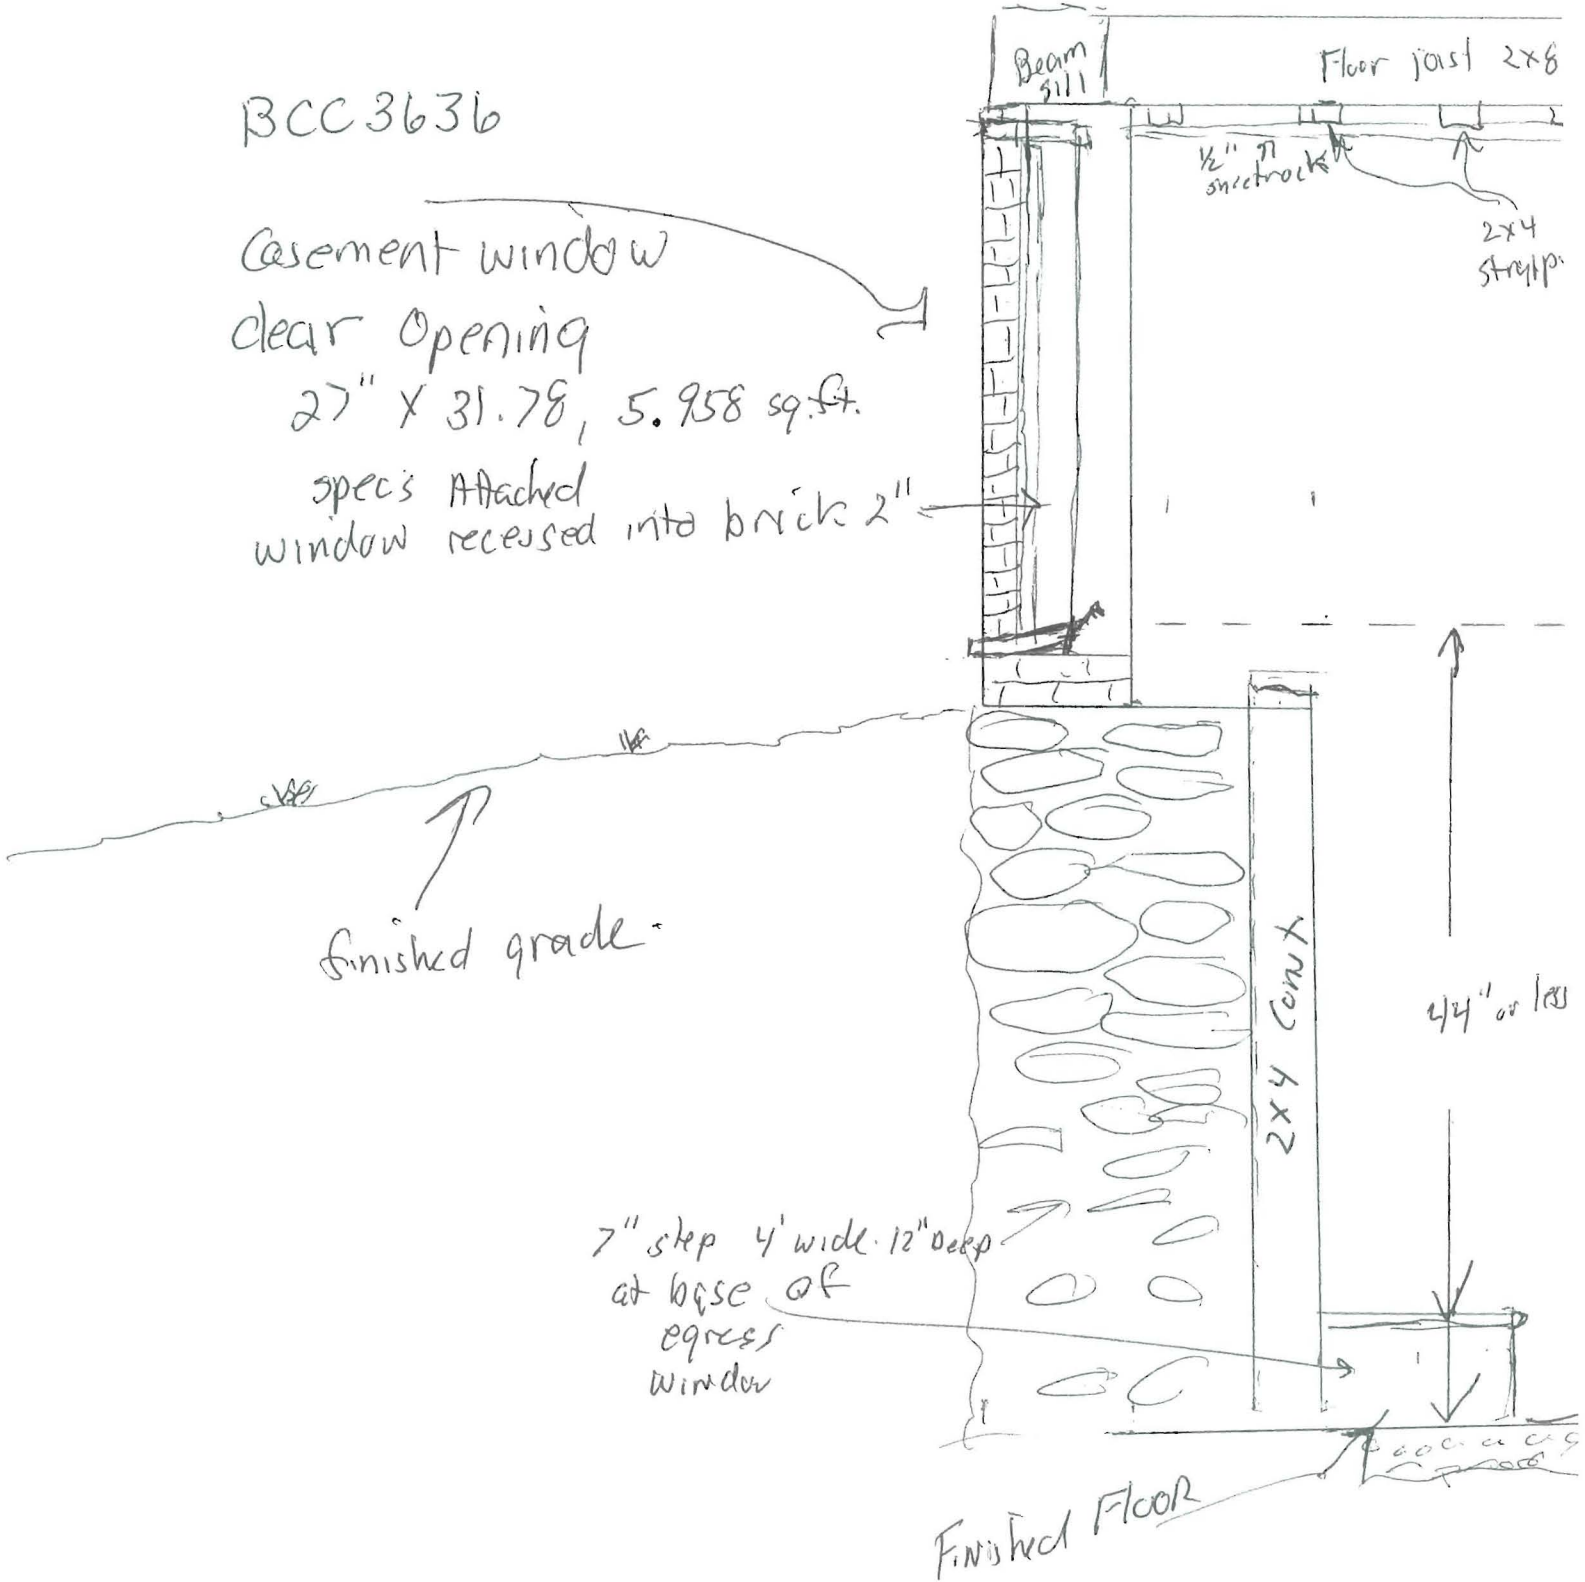 BCC 3636
Casement window
clear Opening
27" X 31.78, 5.958 sq.ft.
spec's Attached
window recessed into brick 2"
Beam
sill
Floor joist 2x8
1/2"
2x4
finished grade.
44" or less
2x4 Const.
7" step 4' wide. 12" Deep
at base of
egress
window
Finished Floor